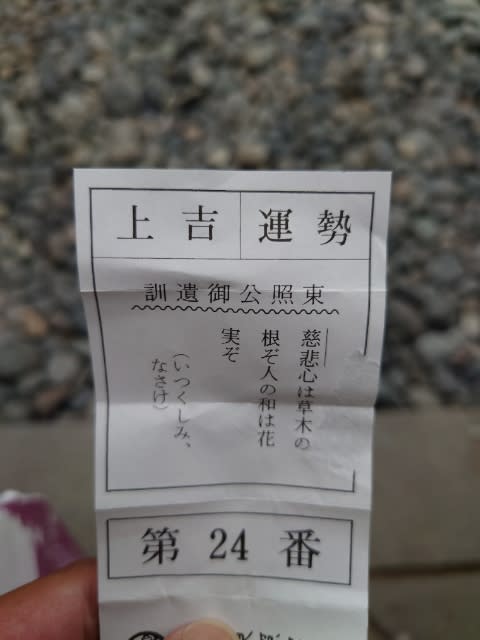 上吉 運勢
訓遺御公照東
慈悲心は草木の
根ぞ人の和は花
実ぞ
(いつくしみ、
なさけ)
第 24 番